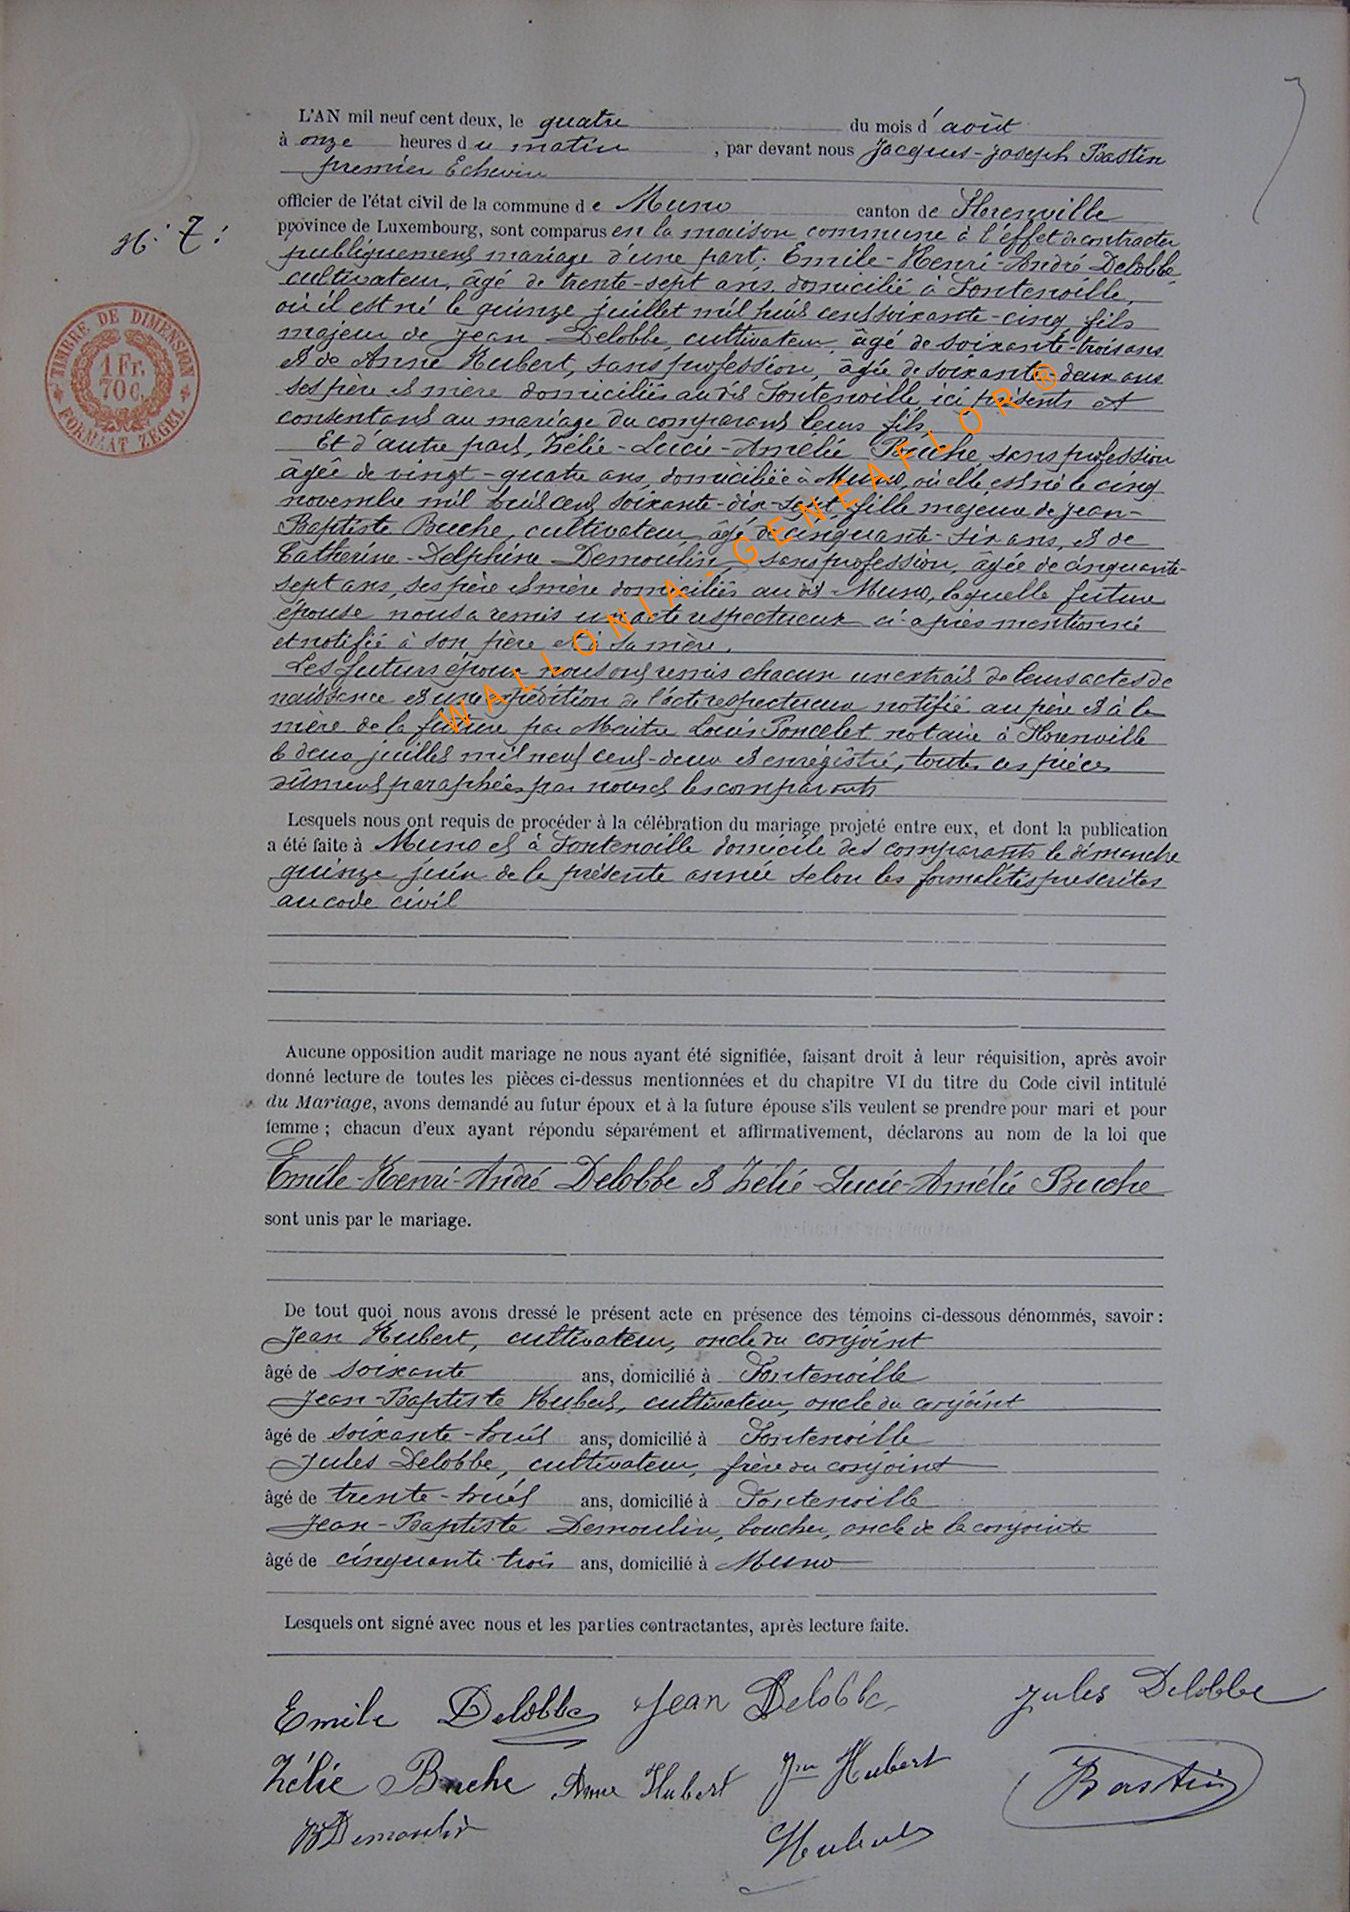 L'AN mil neuf cent deux, le quatre du mois d'août
à onze heures du matin, par devant nous Jacques-Joseph Bastin
premier Echevin
officier de l'état civil de la commune de Muno canton de Florenville
N° 7:
province de Luxembourg, sont comparus en la maison commune à l'effet de contracter
publiquement mariage d'une part; Emile-Henri-André Delobbe,
cultivateur, âgé de trente-sept ans, domicilié à Fontenoille,
où il est né le quinze juillet mil huit cent soixante-cinq fils
majeur de Jean Delobbe, cultivateur, âgé de soixante-trois ans
et de Anne Hubert, sans profession, âgée de soixante-deux ans
ses père et mère domiciliés au dit Fontenoille ici présents et
consentant au mariage du comparant leur fils
Et d'autre part, Zélie-Lucie-Amélie Buche sans profession
âgée de vingt-quatre ans, domiciliée à Muno, où elle est né le cinq
novembre mil huit cent soixante-dix-sept, fille majeure de Jean-
Baptiste Buche, cultivateur, âgé de cinquante-six ans, et de
Catherine-Delphine Demoulin, sans profession, âgée de cinquante-
sept ans, ses père et mère domiciliés au dit Muno, laquelle future
épouse nous a remis un acte respectueux ci-après mentionné
et notifié à son père et à sa mère.
Les futurs époux nous ont remis chacun un extrait de leurs actes de
naissance et une expédition de l'acte respectueux notifié au père et à la
mère de la future par Maître Louis Poncelet notaire à Florenville
le deux juillet mil neuf cent-deux et enregistré, toutes ces pièces
dûment paraphées par nous et les comparants
TIMBRE DE DIMENSION
1 Fr.
70 C.
FORMAAT ZEGEL
WALLONIA-GENEAFLOR ®
Lesquels nous ont requis de procéder à la célébration du mariage projeté entre eux, et dont la publication
a été faite à Muno et à Fontenoille domicile des comparants le dimanche
quinze juin de la présente année selon les formalités prescrites
au code civil
Aucune opposition audit mariage ne nous ayant été signifiée, faisant droit à leur réquisition, après avoir
donné lecture de toutes les pièces ci-dessus mentionnées et du chapitre VI du titre du Code civil intitulé
du Mariage, avons demandé au futur époux et à la future épouse s'ils veulent se prendre pour mari et pour
femme ; chacun d'eux ayant répondu séparément et affirmativement, déclarons au nom de la loi que
Emile-Henri-André Delobbe et Zélie-Lucie-Amélie Buche
sont unis par le mariage.
De tout quoi nous avons dressé le présent acte en présence des témoins ci-dessous dénommés, savoir :
Jean Hubert, cultivateur, oncle du conjoint
âgé de soixante ans, domicilié à Fontenoille
Jean-Baptiste Hubert, cultivateur, oncle du conjoint
âgé de soixante-huit ans, domicilié à Fontenoille
Jules Delobbe, cultivateur, frère du conjoint
âgé de trente-huit ans, domicilié à Fontenoille
Jean-Baptiste Demoulin, boucher, oncle de la conjointe
âgé de cinquante trois ans, domicilié à Muno
Lesquels ont signé avec nous et les parties contractantes, après lecture faite.
Emile Delobbe Jean Delobbe Jules Delobbe
Zélie Buche Anne Hubert Jean Hubert Bastin
JB Demoulin Hubert